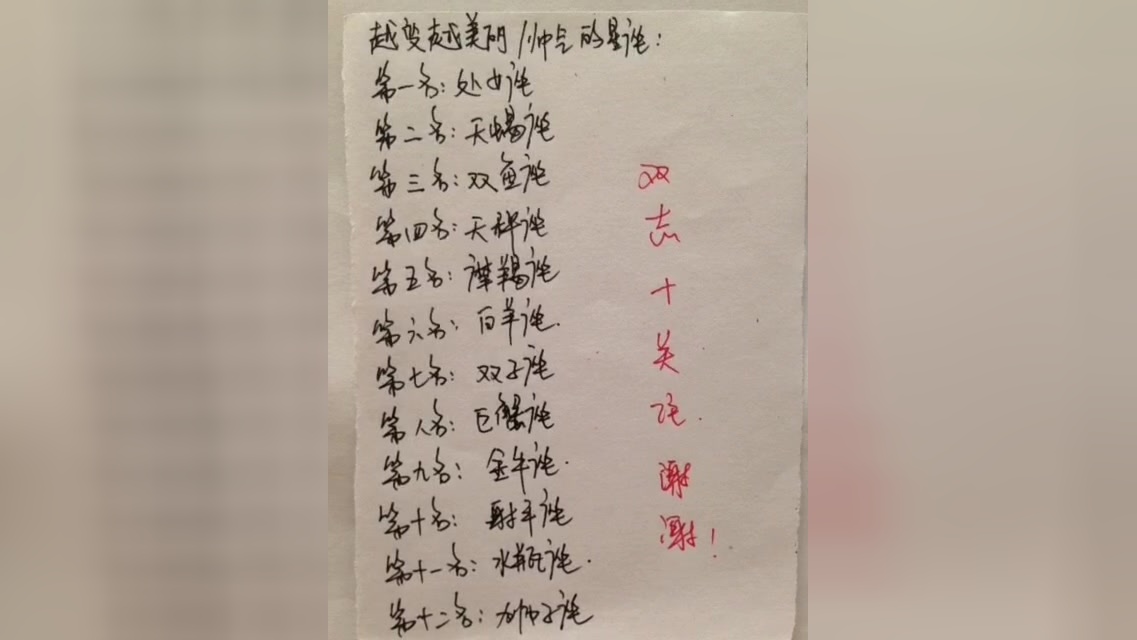 越变越美丽/帅气的星座:
第一名:处女座
第二名:天蝎座
第三名:双鱼座
第四名:天秤座
第五名:摩羯座
第六名:白羊座.
第七名:双子座
第八名:巨蟹座
第九名:金牛座.
第十名:射手座
第十一名:水瓶座.
第十二名:狮子座
双
击
+
关
注.
谢
谢!